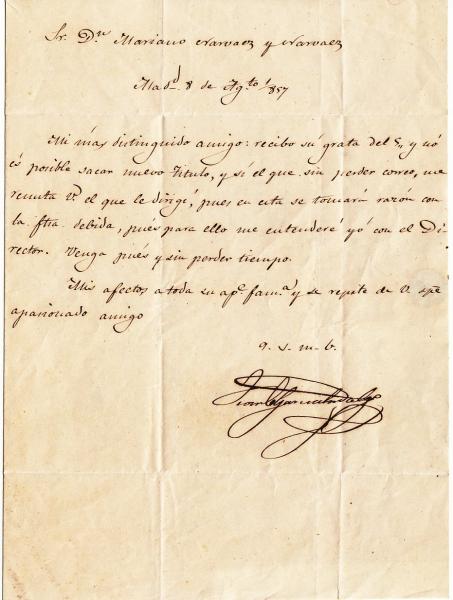 Sr. Dn. Mariano Narvaez y Narvaez
Madd. 8 de Agto. 1857
Mi más distinguido amigo: recibo su grata del 5,, y nó
és posible sacar nuevo Titulo, y sí el que sin perder correo, me
remita V. el que le dirigí, pues en esta se tomará razón con
la fha. debida, pués para ello me entenderé yó con el Di
rector. Venga pués y sin perder tiempo.
Mis afectos a toda su ape. fama. y se repite de V. spe
apasionado amigo
q. s. m. b.